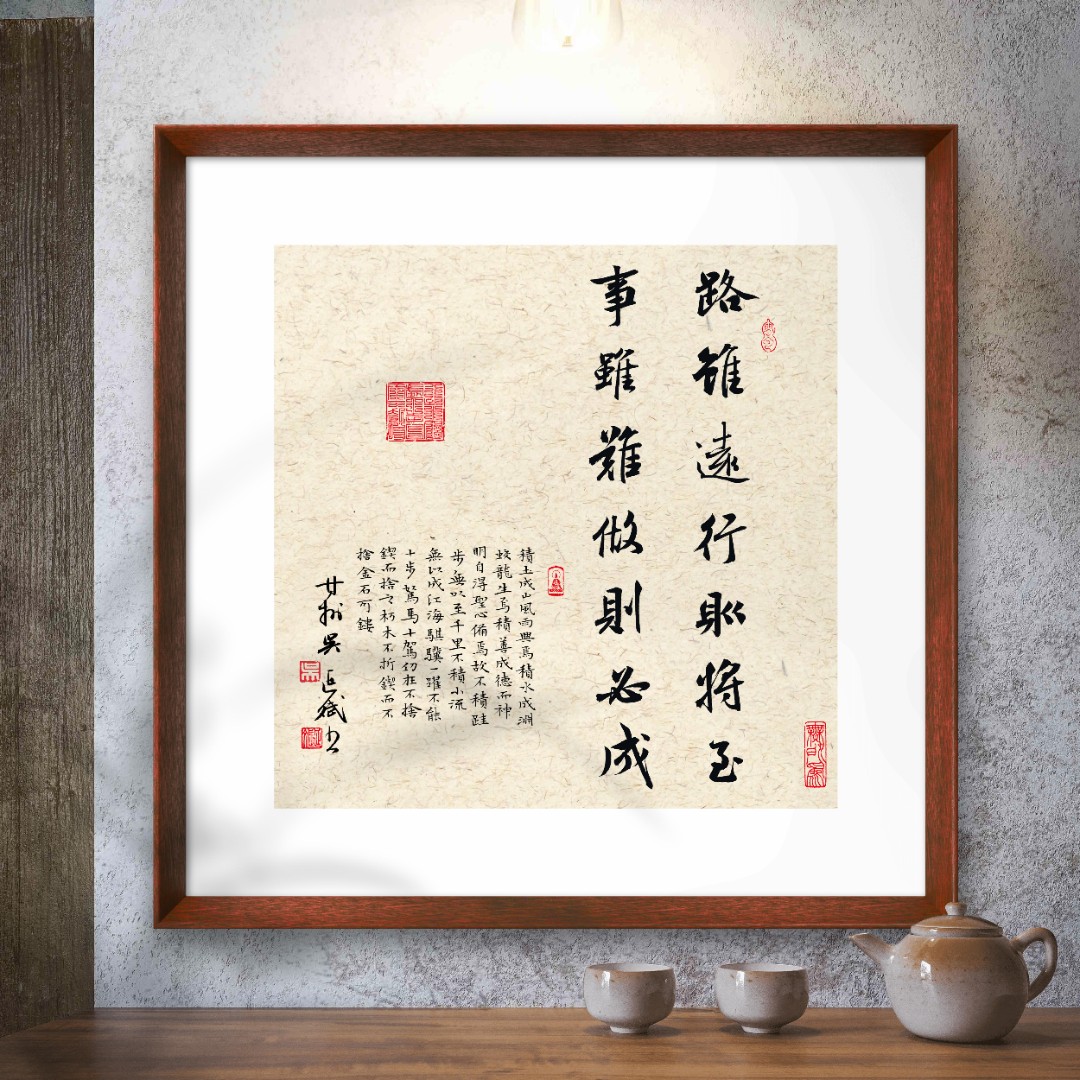 路雖遠行則將至
事雖難做則必成
積土成山風雨興焉積水成淵
蛟龍生焉積善成德而神
明自得聖心備焉故不積跬
步無以至千里不積小流
無以成江海騏驥一躍不能
十步駑馬十駕功在不捨
鍥而捨之朽木不折鍥而不
捨金石可鏤
甘州吳正斌书